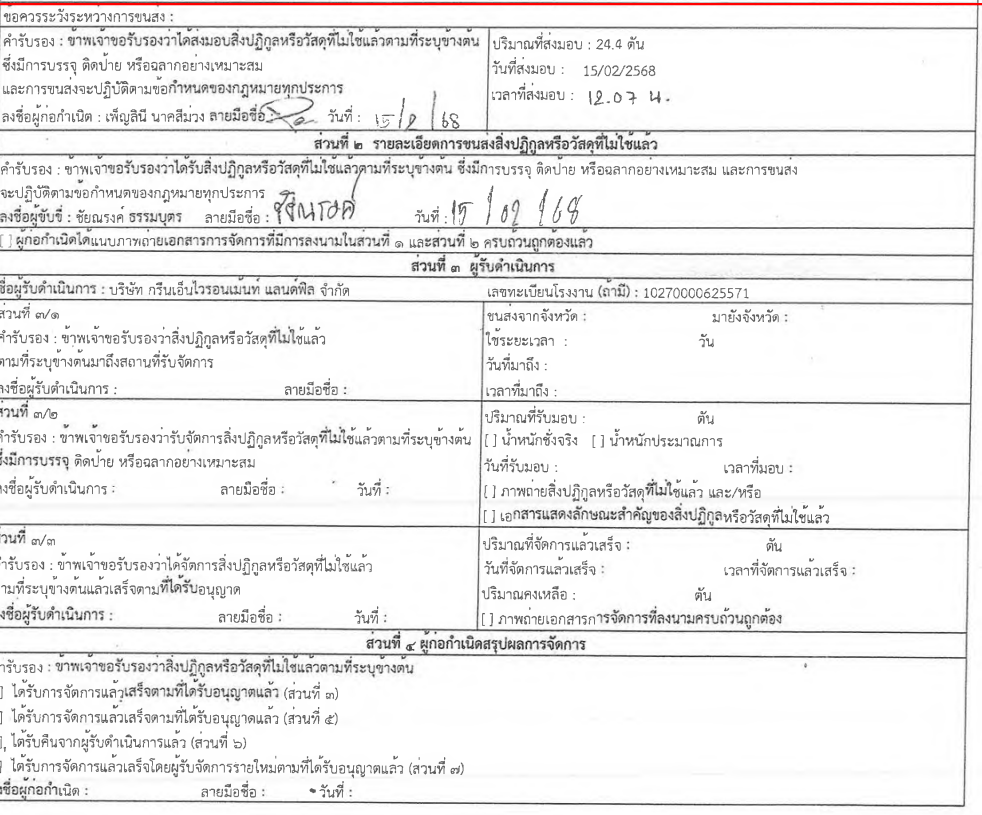 ข้อควรระวังระหว่างการขนส่ง :
คำรับรอง : ข้าพเจ้าขอรับรองว่าได้ส่งมอบสิ่งปฏิกูลหรือวัสดุที่ไม่ใช้แล้วตามที่ระบุข้างต้น
ซึ่งมีการบรรจุ ติดป้าย หรือฉลากอย่างเหมาะสม
และการขนส่งจะปฏิบัติตามข้อกำหนดของกฎหมายทุกประการ
ลงชื่อผู้ก่อกำเนิด : เพ็ญสินี นาคสีม่วง ลายมือชื่อ : วันที่ : 15/2/68
ปริมาณที่ส่งมอบ : 24.4 ตัน
วันที่ส่งมอบ : 15/02/2568
เวลาที่ส่งมอบ : 12.07 น.
ส่วนที่ ๒ รายละเอียดการขนส่งสิ่งปฏิกูลหรือวัสดุที่ไม่ใช้แล้ว
คำรับรอง : ข้าพเจ้าขอรับรองว่าได้รับสิ่งปฏิกูลหรือวัสดุที่ไม่ใช้แล้วตามที่ระบุข้างต้น ซึ่งมีการบรรจุ ติดป้าย หรือฉลากอย่างเหมาะสม และการขนส่ง
จะปฏิบัติตามข้อกำหนดของกฎหมายทุกประการ
ลงชื่อผู้ขับขี่ : ชัยณรงค์ ธรรมบุตร ลายมือชื่อ : ชัยณรงค์ วันที่ : 15/02/68
[ ] ผู้ก่อกำเนิดได้แนบภาพถ่ายเอกสารการจัดการที่มีการลงนามในส่วนที่ ๑ และส่วนที่ ๒ ครบถ้วนถูกต้องแล้ว
ส่วนที่ ๓ ผู้รับดำเนินการ
ชื่อผู้รับดำเนินการ : บริษัท กรีนเอ็นไวรอนเม้นท์ แลนด์ฟิล จำกัด เลขทะเบียนโรงงาน (ถ้ามี) : 10270000625571
ส่วนที่ ๓/๑
คำรับรอง : ข้าพเจ้าขอรับรองว่าสิ่งปฏิกูลหรือวัสดุที่ไม่ใช้แล้ว
ตามที่ระบุข้างต้นมาถึงสถานที่รับจัดการ
ลงชื่อผู้รับดำเนินการ : ลายมือชื่อ :
ขนส่งจากจังหวัด : มายังจังหวัด :
ใช้ระยะเวลา : วัน
วันที่มาถึง :
เวลาที่มาถึง :
ส่วนที่ ๓/๒
คำรับรอง : ข้าพเจ้าขอรับรองว่ารับจัดการสิ่งปฏิกูลหรือวัสดุที่ไม่ใช้แล้วตามที่ระบุข้างต้น
ซึ่งมีการบรรจุ ติดป้าย หรือฉลากอย่างเหมาะสม
ลงชื่อผู้รับดำเนินการ : ลายมือชื่อ : วันที่ :
ปริมาณที่รับมอบ : ตัน
[ ] น้ำหนักชั่งจริง [ ] น้ำหนักประมาณการ
วันที่รับมอบ : เวลาที่มอบ :
[ ] ภาพถ่ายสิ่งปฏิกูลหรือวัสดุที่ไม่ใช้แล้ว และ/หรือ
[ ] เอกสารแสดงลักษณะสำคัญของสิ่งปฏิกูลหรือวัสดุที่ไม่ใช้แล้ว
ส่วนที่ ๓/๓
คำรับรอง : ข้าพเจ้าขอรับรองว่าได้จัดการสิ่งปฏิกูลหรือวัสดุที่ไม่ใช้แล้ว
ตามที่ระบุข้างต้นแล้วเสร็จตามที่ได้รับอนุญาต
ลงชื่อผู้รับดำเนินการ : ลายมือชื่อ : วันที่ :
ปริมาณที่จัดการแล้วเสร็จ : ตัน
วันที่จัดการแล้วเสร็จ : เวลาที่จัดการแล้วเสร็จ :
ปริมาณคงเหลือ : ตัน
[ ] ภาพถ่ายเอกสารการจัดการที่ลงนามครบถ้วนถูกต้อง
ส่วนที่ ๔ ผู้ก่อกำเนิดสรุปผลการจัดการ
คำรับรอง : ข้าพเจ้าขอรับรองว่าสิ่งปฏิกูลหรือวัสดุที่ไม่ใช้แล้วตามที่ระบุข้างต้น
] ได้รับการจัดการแล้วเสร็จตามที่ได้รับอนุญาตแล้ว (ส่วนที่ ๓)
] ได้รับการจัดการแล้วเสร็จตามที่ได้รับอนุญาตแล้ว (ส่วนที่ ๕)
] ได้รับคืนจากผู้รับดำเนินการแล้ว (ส่วนที่ ๖)
] ได้รับการจัดการแล้วเสร็จโดยผู้รับจัดการรายใหม่ตามที่ได้รับอนุญาตแล้ว (ส่วนที่ ๗)
ลงชื่อผู้ก่อกำเนิด : ลายมือชื่อ : วันที่ :